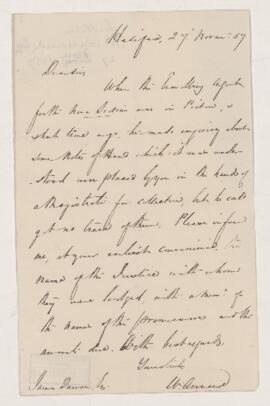 Halifax, 27 Novr. 57
Dear Sir
When the Travelling Agent
for the Nova Scotian was in Pictou, a
short time ago, he made enquiry about
some Notes of Hand which it was under-
stood were placed by you in the hands of
a Magistrate for collection, but he could
get no trace of them. Please inform
me, at your earliest convenience, the
name of the Justice with whom
they were lodged, with a mem. of
the names of the promissors and the
amounts due. With best regards,
Yours truly
James Dawson Esq. Wm Annand